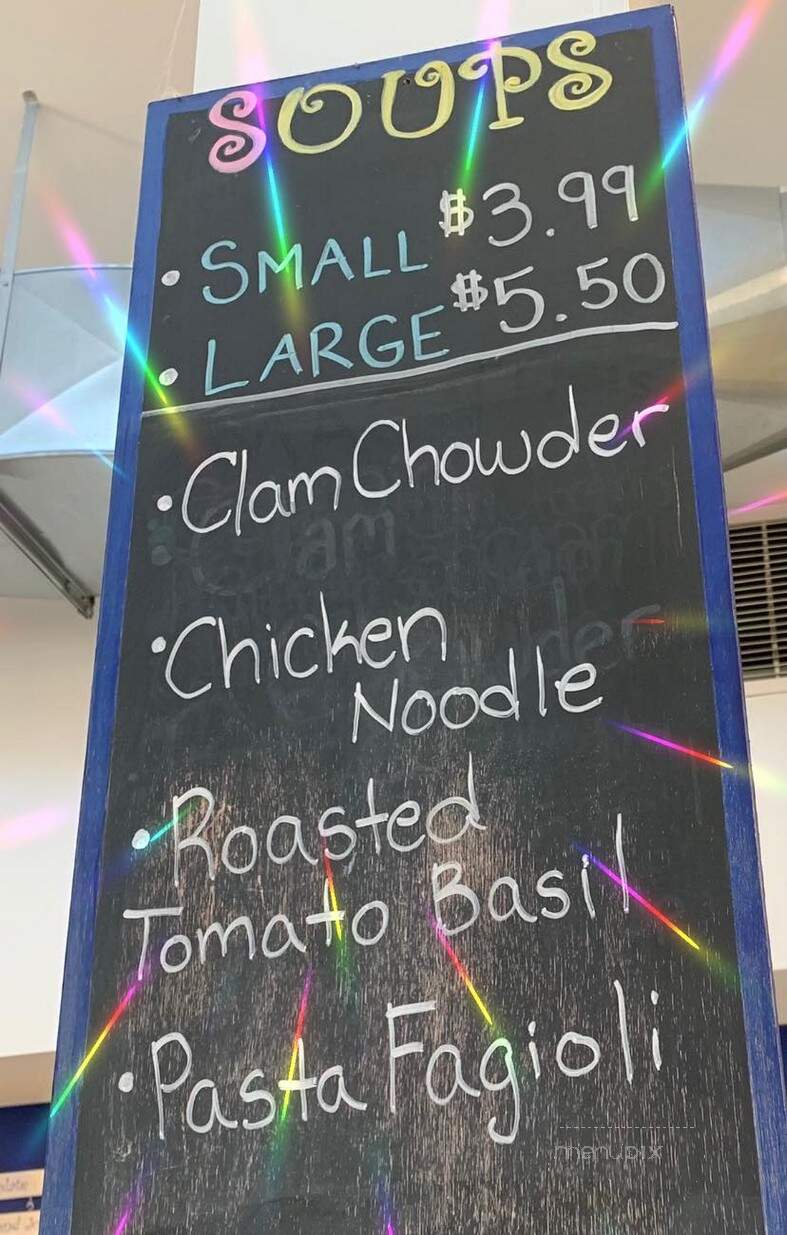 SOUPS
• SMALL $3.99
• LARGE $5.50
• Clam Chowder
• Chicken
Noodle
• Roasted
Tomato Basil
• Pasta Fagioli
menupix